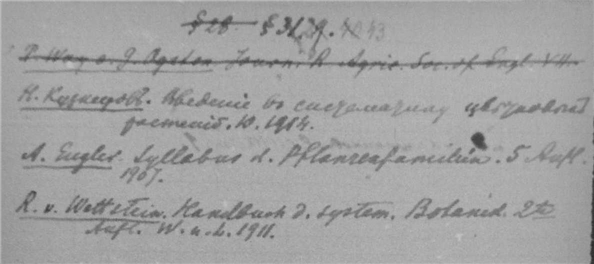 § 28 § 31,
P. Way a. J. Ogston Journ. R. Agric. Soc. of Engl. VII.
Н. Кузнецовъ. Введеніе въ систематику цвѣтковыхъ
растеній. Ю. 1914.
A. Engler. Syllabus d. Pflanzenfamilien. 5 Aufl.
1907.
R. v. Wettstein. Handbuch d. system. Botanik. 2te
Aufl. W. u. L. 1911.